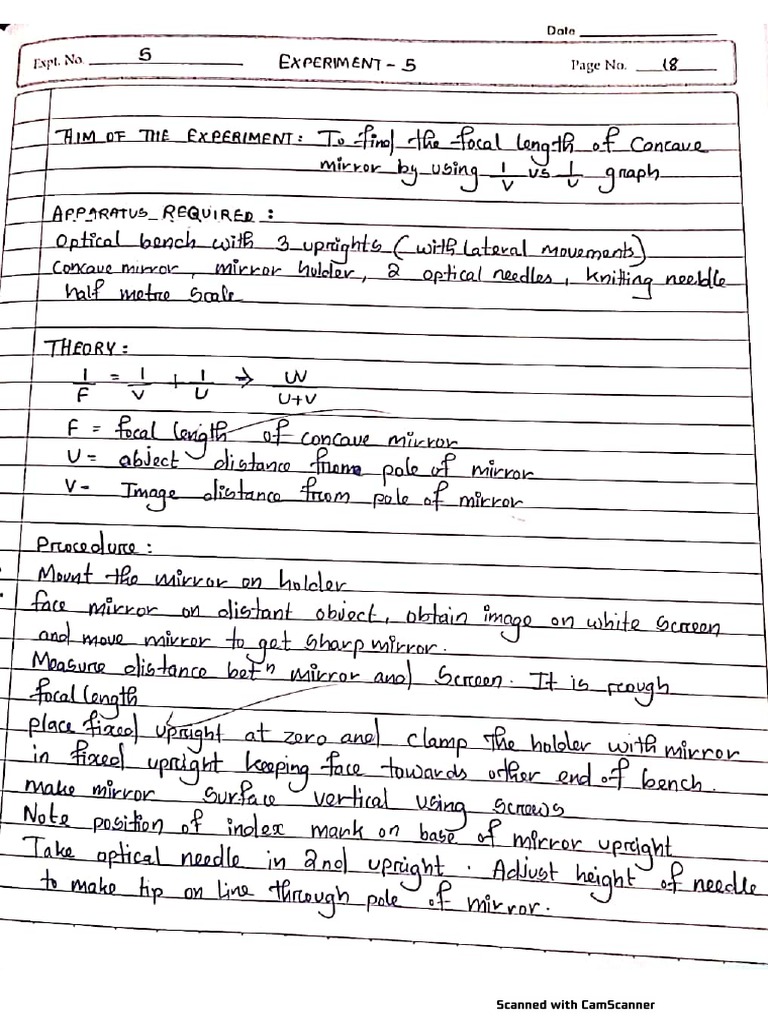 Date
Expt. No. 5 EXPERIMENT - 5 Page No. 18
AIM OF THE EXPERIMENT: To find the focal length of Concave
mirror by using 1/V vs 1/U graph
APPARATUS REQUIRED:
Optical bench with 3 uprights (with lateral movements)
Concave mirror, mirror holder, 2 optical needles, knitting needble
half metre scale
THEORY:
1/F = 1/V + 1/U → UV/U+V
F = focal length of concave mirror
U = abject distance frome pole of mirror
V - Image distance from pole of mirror
Procedure:
Mount the mirror on holder
face mirror on distant object, obtain image on white screen
and move mirror to get sharp mirror.
Measure distance betn mirror and screen. It is rough
focal length
place fixed upright at zero and clamp the holder with mirror
in fixed upright keeping face towards other end of bench.
make mirror surface vertical using screws
Note position of index mark on base of mirror upright
Take optical needle in 2nd upright. Adjust height of needle
to make tip on line through pole of mirror.
Scanned with CamScanner